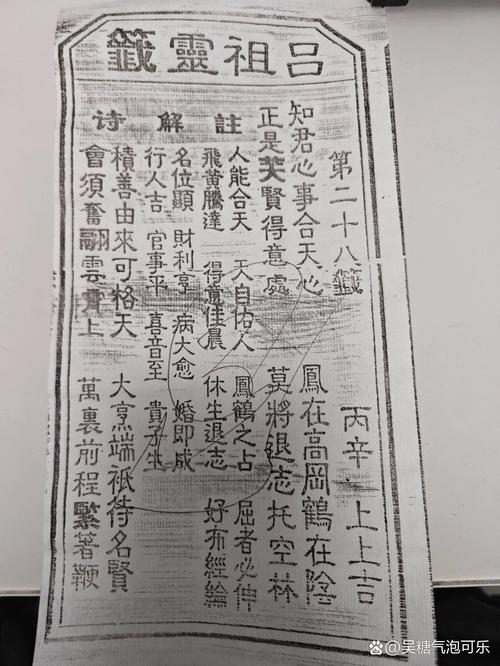 吕祖靈籤
第二十八籤 丙辛 上上吉
知君心事合天心 鳳在高岡鶴在陰
正是英賢得意處 莫將退志托空林
註解诗
人能合天 天自佑人 鳳鶴之占 屈者必伸
飛黄騰達 得意佳晨 休生退志 好布經綸
名位顯 財利亨 病大愈 婚即成
行人吉 官事平 喜音至 貴子生
積善由來可格天 大烹端祇待名賢
會須奮翮雲霄上 萬裏前程緊著鞭
@吴糖气泡可乐